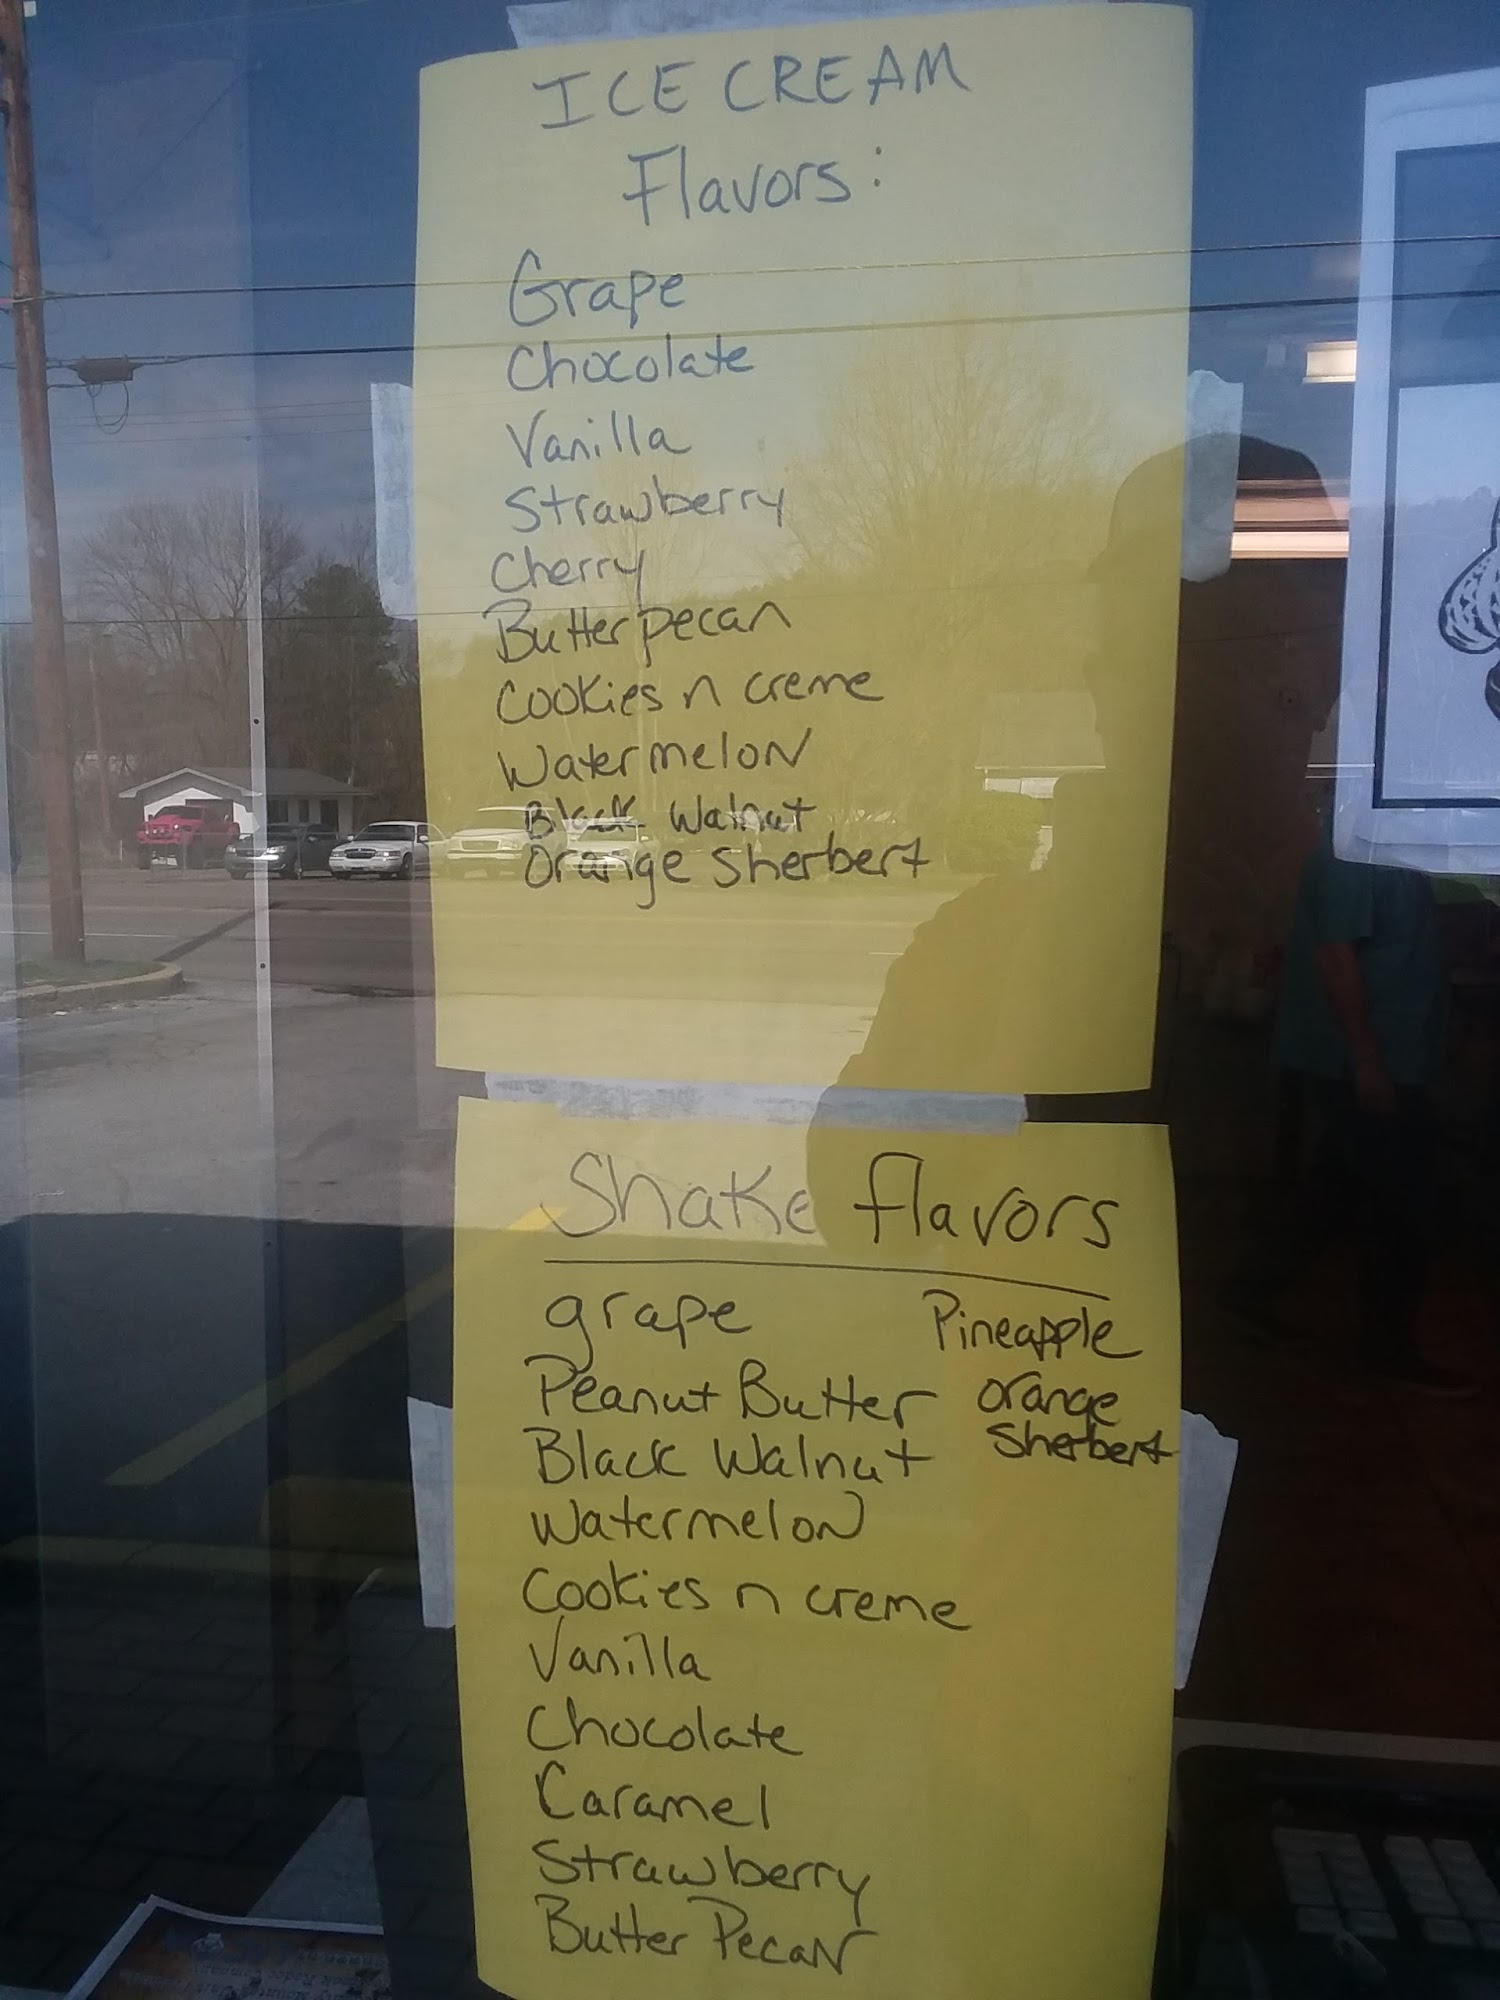 ICE CREAM
Flavors:
Grape
Chocolate
Vanilla
Strawberry
Cherry
Butter pecan
Cookies n creme
Watermelon
Black Walnut
Orange Sherbert
Shake flavors
grape
Peanut Butter
Black Walnut
Watermelon
Cookies n creme
Vanilla
Chocolate
Caramel
Strawberry
Butter Pecan
Pineapple
Orange
Sherbert